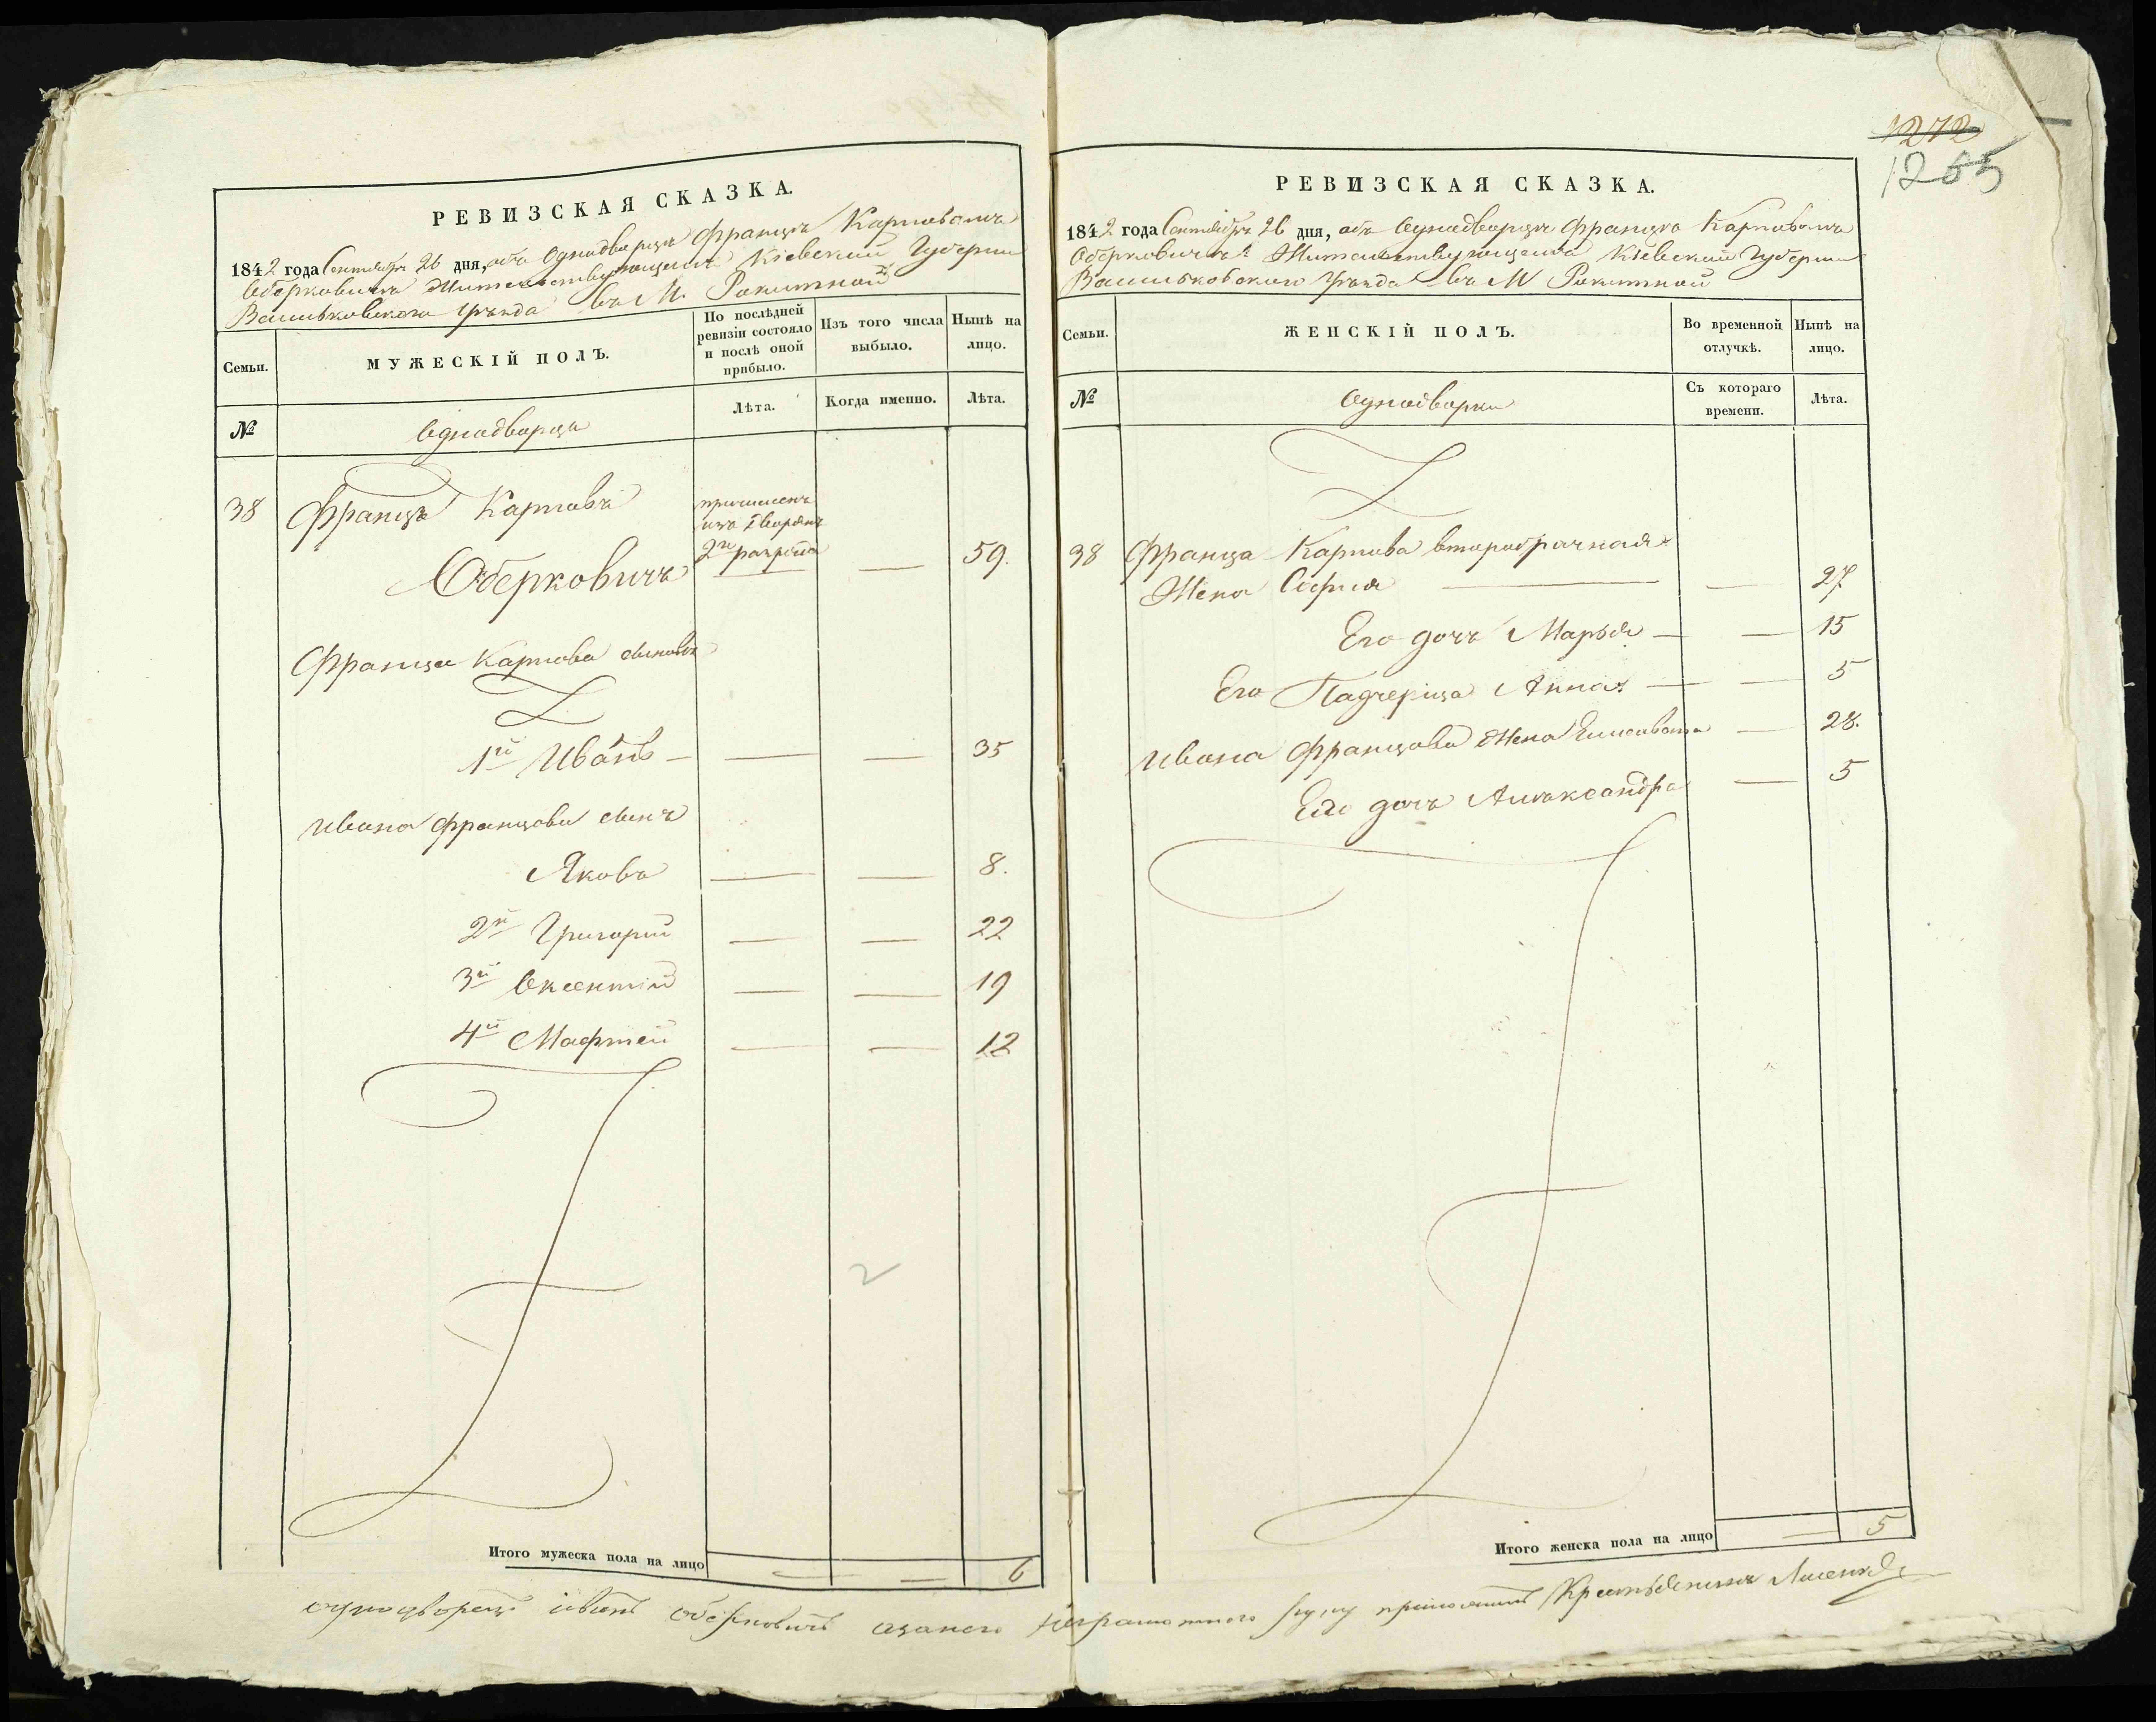 1272
1265
РЕВИЗСКАЯ СКАЗКА.
1842 года Сентября 26 дня, объ Однодворцѣ Францѣ Карповомъ
Оберковичѣ Жительствующемъ Кіевской Губерніи
Васильковскаго Уѣзда въ М. Рокитной
Семьи.
МУЖЕСКІЙ ПОЛЪ.
По послѣдней ревизіи состояло и послѣ оной прибыло.
Изъ того числа выбыло.
Нынѣ на лицо.
№
Однодворцы
Лѣта.
Когда именно.
Лѣта.
38 Францъ Карповъ причисленъ
изъ дворянъ
Оберковичъ 2го разряда — 59.
Франца Карпова сыновья
1й Иванъ — — — 35
Ивана Францова сынъ
Яковъ — — 8.
2й Григорій — — 22
3й Оксентій — — 19
4й Мафтей — — 12
2
Итого мужеска пола на лицо — — 6
РЕВИЗСКАЯ СКАЗКА.
1842 года Сентября 26 дня, объ Однодворцѣ Францѣ Карповомъ
Оберковичѣ Жительствующемъ Кіевской Губерніи
Васильковскаго Уѣзда въ М Рокитной
Семьи.
ЖЕНСКІЙ ПОЛЪ.
Во временной отлучкѣ.
Нынѣ на лицо.
№
Однодворки
Съ котораго времени.
Лѣта.
38 Франца Карпова второбрачная
Жена Софія — — 27
Его дочь Марья — — 15
Его Падчерица Анна — — 5
Ивана Францова Жена Елисавета — 28.
Его дочь Александра — 5
Итого женска пола на лицо — 5
однодворецъ иванъ оберковичъ азанего неграмотного руку приложилъ Крестьянинъ